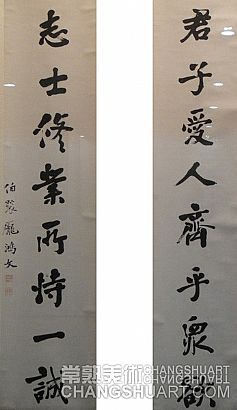 君子愛人齊乎眾欲
志士修業所恃一誠
伯裳龐鴻文
常熟美術 CHANGSHUART
CHANGSHUART.COM